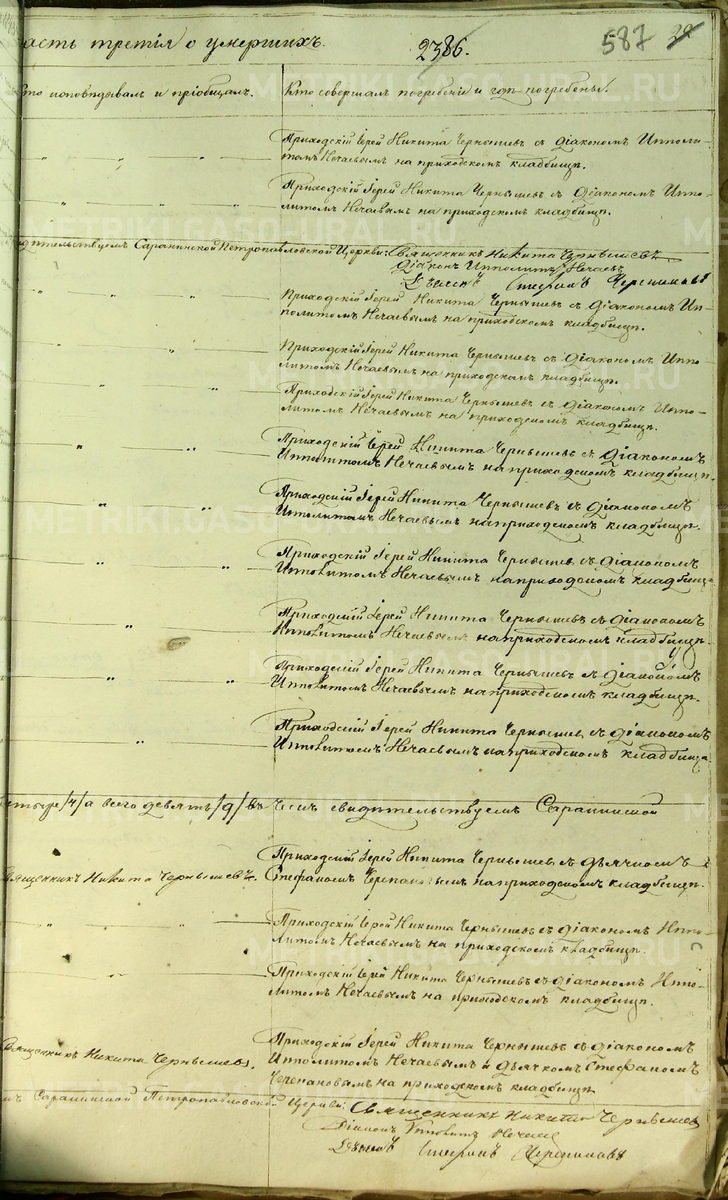 асть третія о умершихъ.
2386.
587
Кто исповѣдывалъ и пріобщалъ.
Кто совершалъ погребеніе и гдѣ погребены.
Приходскій Іерей Никита Чернышевъ съ діакономъ Иппо-
литомъ Нечаевымъ на приходскомъ кладбищѣ.
Приходскій Іерей Никита Чернышевъ съ діакономъ Иппо-
литомъ Нечаевымъ на приходскомъ кладбищѣ.
идѣтельствуемъ Саранинской Петропавловской Церкви: Священникъ Никита Чернышевъ
Діаконъ Ипполитъ Нечаевъ
Дьячекъ Стефанъ Черепановъ
Приходскій Іерей Никита Чернышевъ съ діакономъ Ип-
политомъ Нечаевымъ на приходскомъ кладбищѣ.
Приходскій Іерей Никита Чернышевъ съ діакономъ Иппо-
литомъ Нечаевымъ на приходскомъ кладбищѣ.
Приходскій Іерей Никита Чернышевъ съ діакономъ Иппо-
литомъ Нечаевымъ на приходскомъ кладбищѣ.
Приходскій Іерей Никита Чернышевъ съ діакономъ
Ипполитомъ Нечаевымъ на приходскомъ кладбищѣ.
Приходскій Іерей Никита Чернышевъ съ діакономъ
Иполитомъ Нечаевымъ на приходскомъ кладбищѣ.
Приходскій Іерей Никита Чернышев съ діакономъ
Иполитомъ Нечаевымъ на приходскомъ кладбищѣ
Приходскій Іерей Никита Чернышевъ съ діакономъ
Иполитомъ Нечаевымъ на приходскомъ кладбищѣ.
Приходскій Іерей Никита Чернышевъ съ діакономъ
Иполитомъ Нечаевымъ на приходскомъ кладбищѣ.
Приходскій Іерей Никита Чернышев съ діакономъ
Иполитомъ Нечаевымъ на приходскомъ кладбищѣ
етыре /4/ а всего девять /9/ въ чемъ свидѣтельствуемъ Саранинской
Приходскій Іерей Никита Чернышев съ дьячкомъ
Священникъ Никита Чернышевъ.
Стефаномъ Черепановымъ на приходскомъ кладбищѣ.
Приходскій Іерей Никита Чернышевъ съ діакономъ Иппо-
литомъ Нечаевымъ на приходскомъ кладбищѣ.
Приходскій Іерей Никита Чернышевъ съ діакономъ Иппо-
литомъ Нечаевымъ на приходскомъ кладбищѣ.
Приходскій Іерей Никита Чернышевъ съ діакономъ
Священникъ Никита Чернышевъ.
Иполитомъ Нечаевымъ и дьячкомъ Стефаномъ
Черепановымъ на приходскомъ кладбищѣ
мъ Саранинской Петропавловской Церкви: Священникъ Никита Чернышевъ
Діаконъ Иполитъ Нечаевъ
Дьячекъ Стефанъ Черепановъ